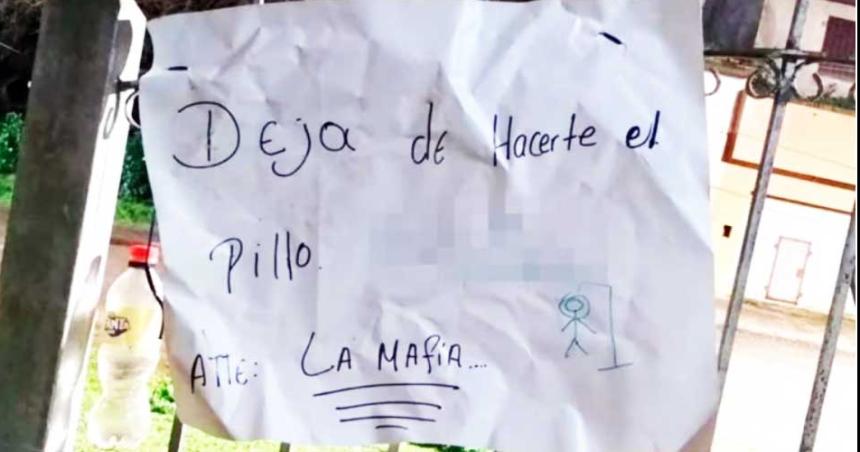 Deja de Hacerte el
Pillo.
ATTE: LA MAFiA...